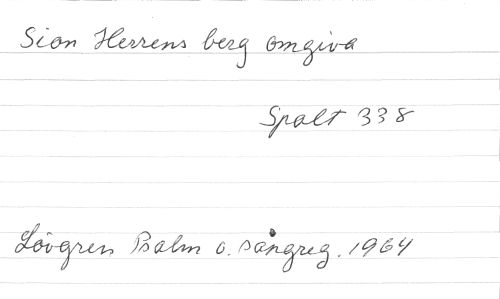 Sion Herrens berg omgiva
Spalt 338
Lövgren Psalm o. sångreg. 1964